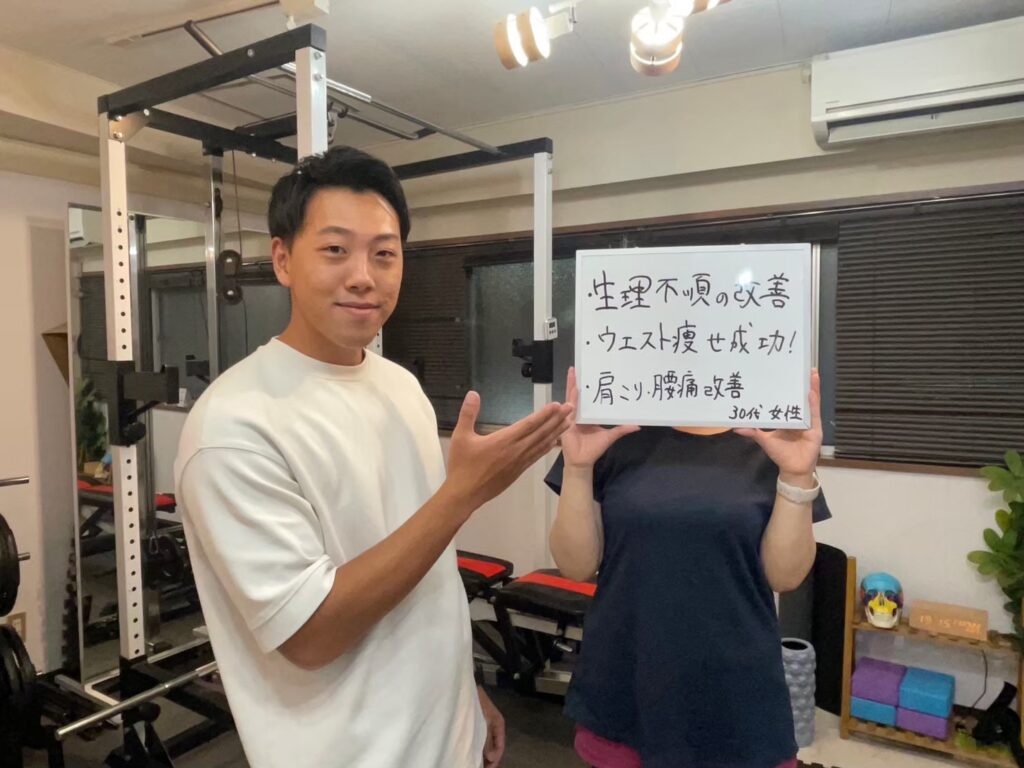 ・生理不順の改善
・ウエスト痩せ成功!
・肩こり・腰痛改善
30代 女性